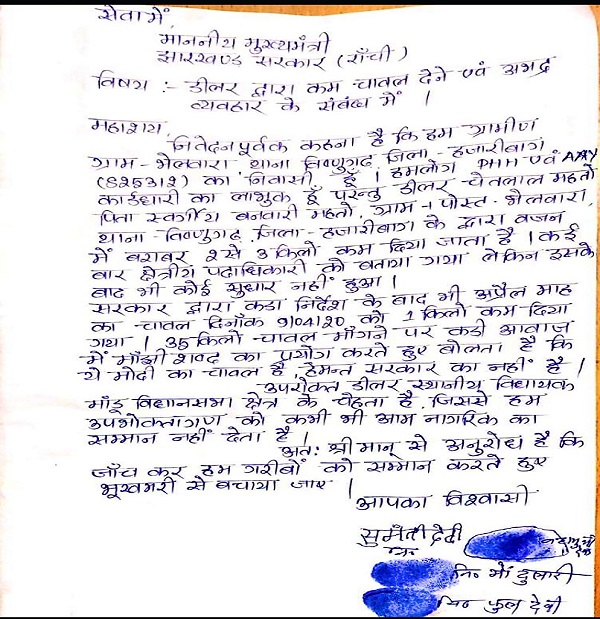 सेवा में,
माननीय मुख्यमंत्री
झारखण्ड सरकार (राँची)
विषय :- डीलर द्वारा कम चावल देने एवं अभद्र
व्यवहार के संबंध में ।
महाशय,
निवेदन पूर्वक कहना है कि हम ग्रामीण
ग्राम-भेलवारा थाना विष्णुगढ़ जिला-हजारीबाग
(825312) का निवासी हूँ । हमलोग PHH एवं AAY
कार्डधारी का लाभुक हूँ परन्तु डीलर-चेतलाल महतो
पिता स्वर्गीय बनवारी महतो, ग्राम+पोस्ट-भेलवारा,
थाना-विष्णुगढ़ जिला-हजारीबाग के द्वारा वजन
में बराबर 2 से 3 किलो कम दिया जाता है । कई
बार क्षेत्रीय पदाधिकारी को बताया गया लेकिन इसके
बाद भी कोई सुधार नहीं हुआ ।
सरकार द्वारा कडा निर्देश के बाद भी अप्रैल माह
का चावल दिनाँक 9/04/20 को 1 किलो कम दिया
गया । 35 किलो चावल माँगने पर कडी आवाज
में माँझी शब्द का प्रयोग करते हुए बोलता है कि
ये मोदी का चावल है, हेमन्त सरकार का नहीं है ।
उपरोक्त डीलर स्थानीय विधायक
माँडू विधानसभा क्षेत्र के चेहता है, जिससे हम
उपभोक्तागण को कभी भी आम नागरिक का
सम्मान नहीं देता है ।
अतः श्रीमान् से अनुरोध है कि
जाँच कर हम गरीबों को सम्मान करते हुए
भूखमरी से बचाया जाए ।
आपका विश्वासी
सुमंती देवी
नि॰ मो॰ दुलारी
नि॰ फुल देवी